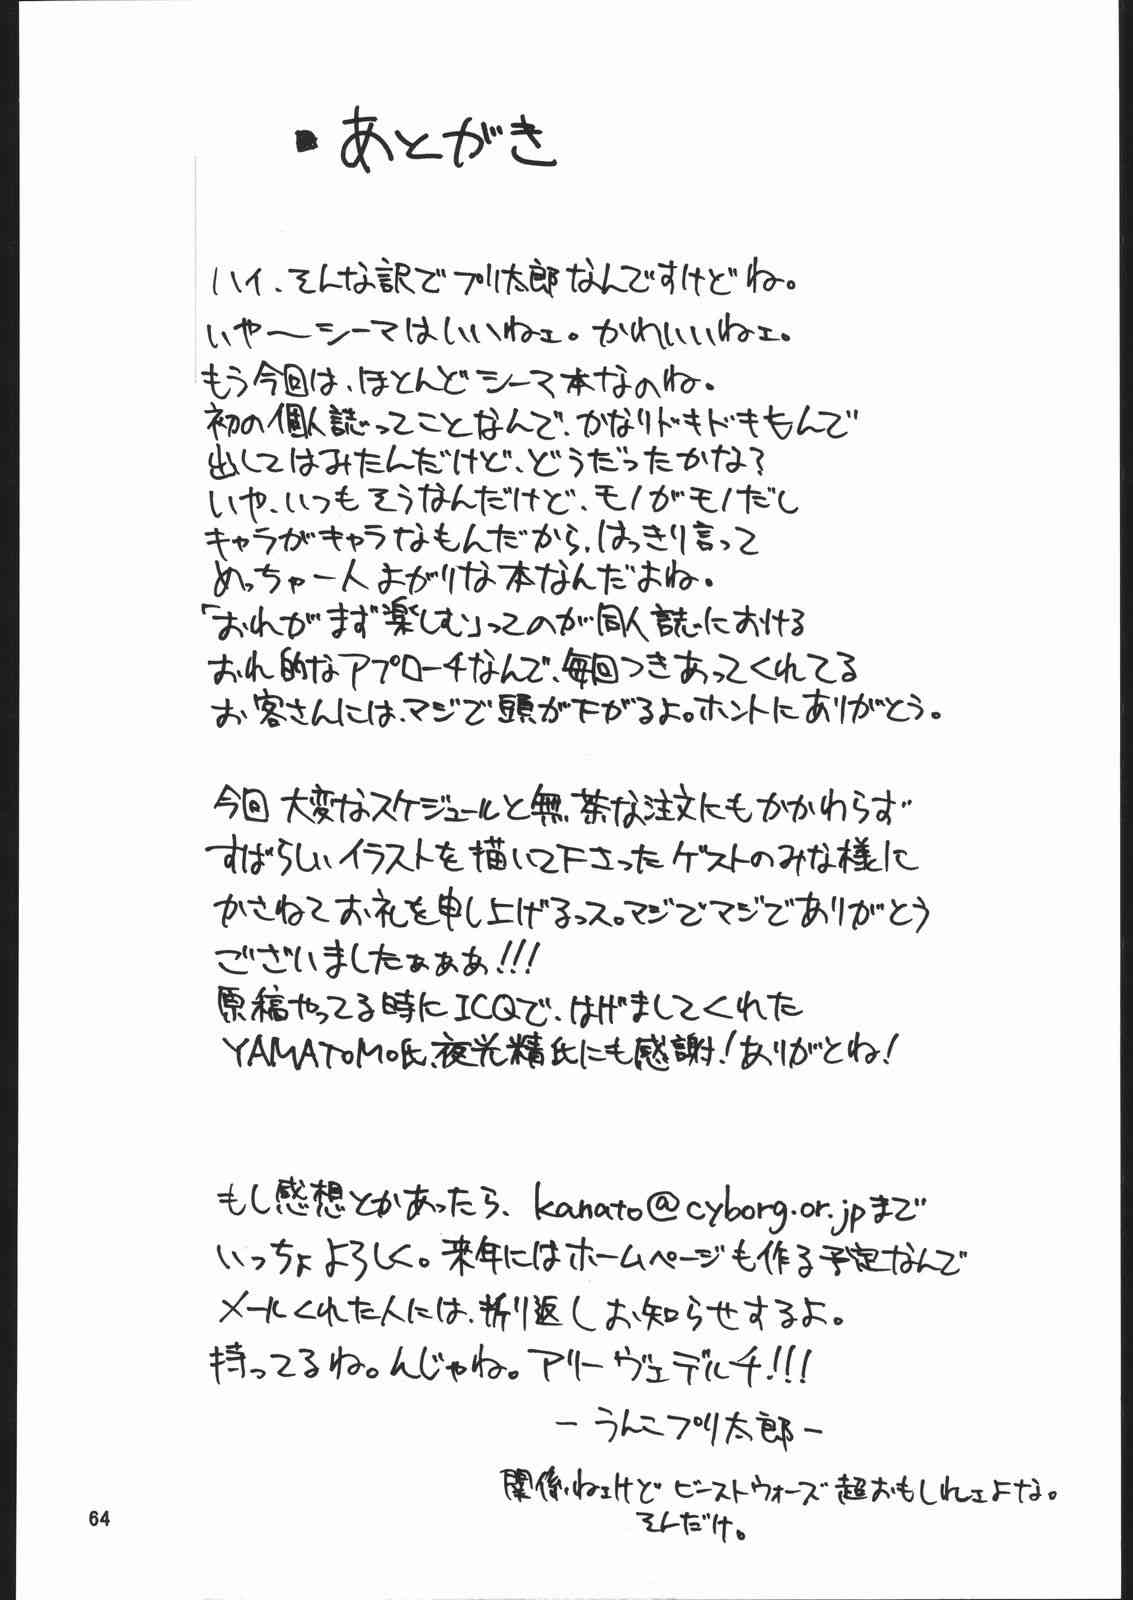 ・あとがき
ハイ、そんな訳でプリ太郎なんですけどね。
いや〜シーマはいいねェ。かわいいねェ。
もう今回は、ほとんどシーマ本なのね。
初の個人誌ってことなんで、かなりドキドキもんで
出してはみたんだけど、どうだったかな?
いや、いつもそうなんだけど、モノがモノだし
キャラがキャラなもんだから、はっきり言って
めっちゃ一人よがりな本なんだよね。
「おれがまず楽しむ」ってのが同人誌における
おれ的なアプローチなんで、毎回つきあってくれてる
お客さんには、マジで頭が下がるよ。ホントにありがとう。
今回大変なスケジュールと無茶な注文にもかかわらず
すばらしいイラストを描いて下さったゲストのみな様に
かさねてお礼を申し上げるっス。マジでマジでありがとう
ございましたぁぁぁ!!!
原稿やってる時にICQで、はげましてくれた
YAMATOMO氏、夜光精氏にも感謝!ありがとね!
もし感想とかあったら、kanato@cyborg.or.jpまで
いっちょよろしく。来年にはホームページも作る予定なんで
メールくれた人には、折り返しお知らせするよ。
待ってるね。んじゃね。アリーヴェデルチ!!!
−うんこプリ太郎−
関係ねェけどビーストウォーズ超おもしれェよな。
そんだけ。
64